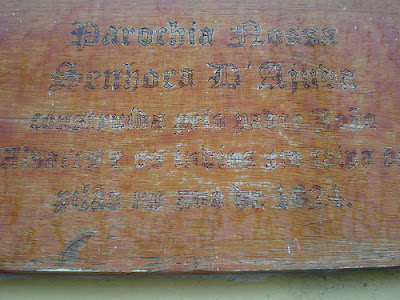 Parochia Nossa
Senhora D'Ajuda
construída pelo padre João
Alvares e os indios em taipa de
pilão no ano de 1624.